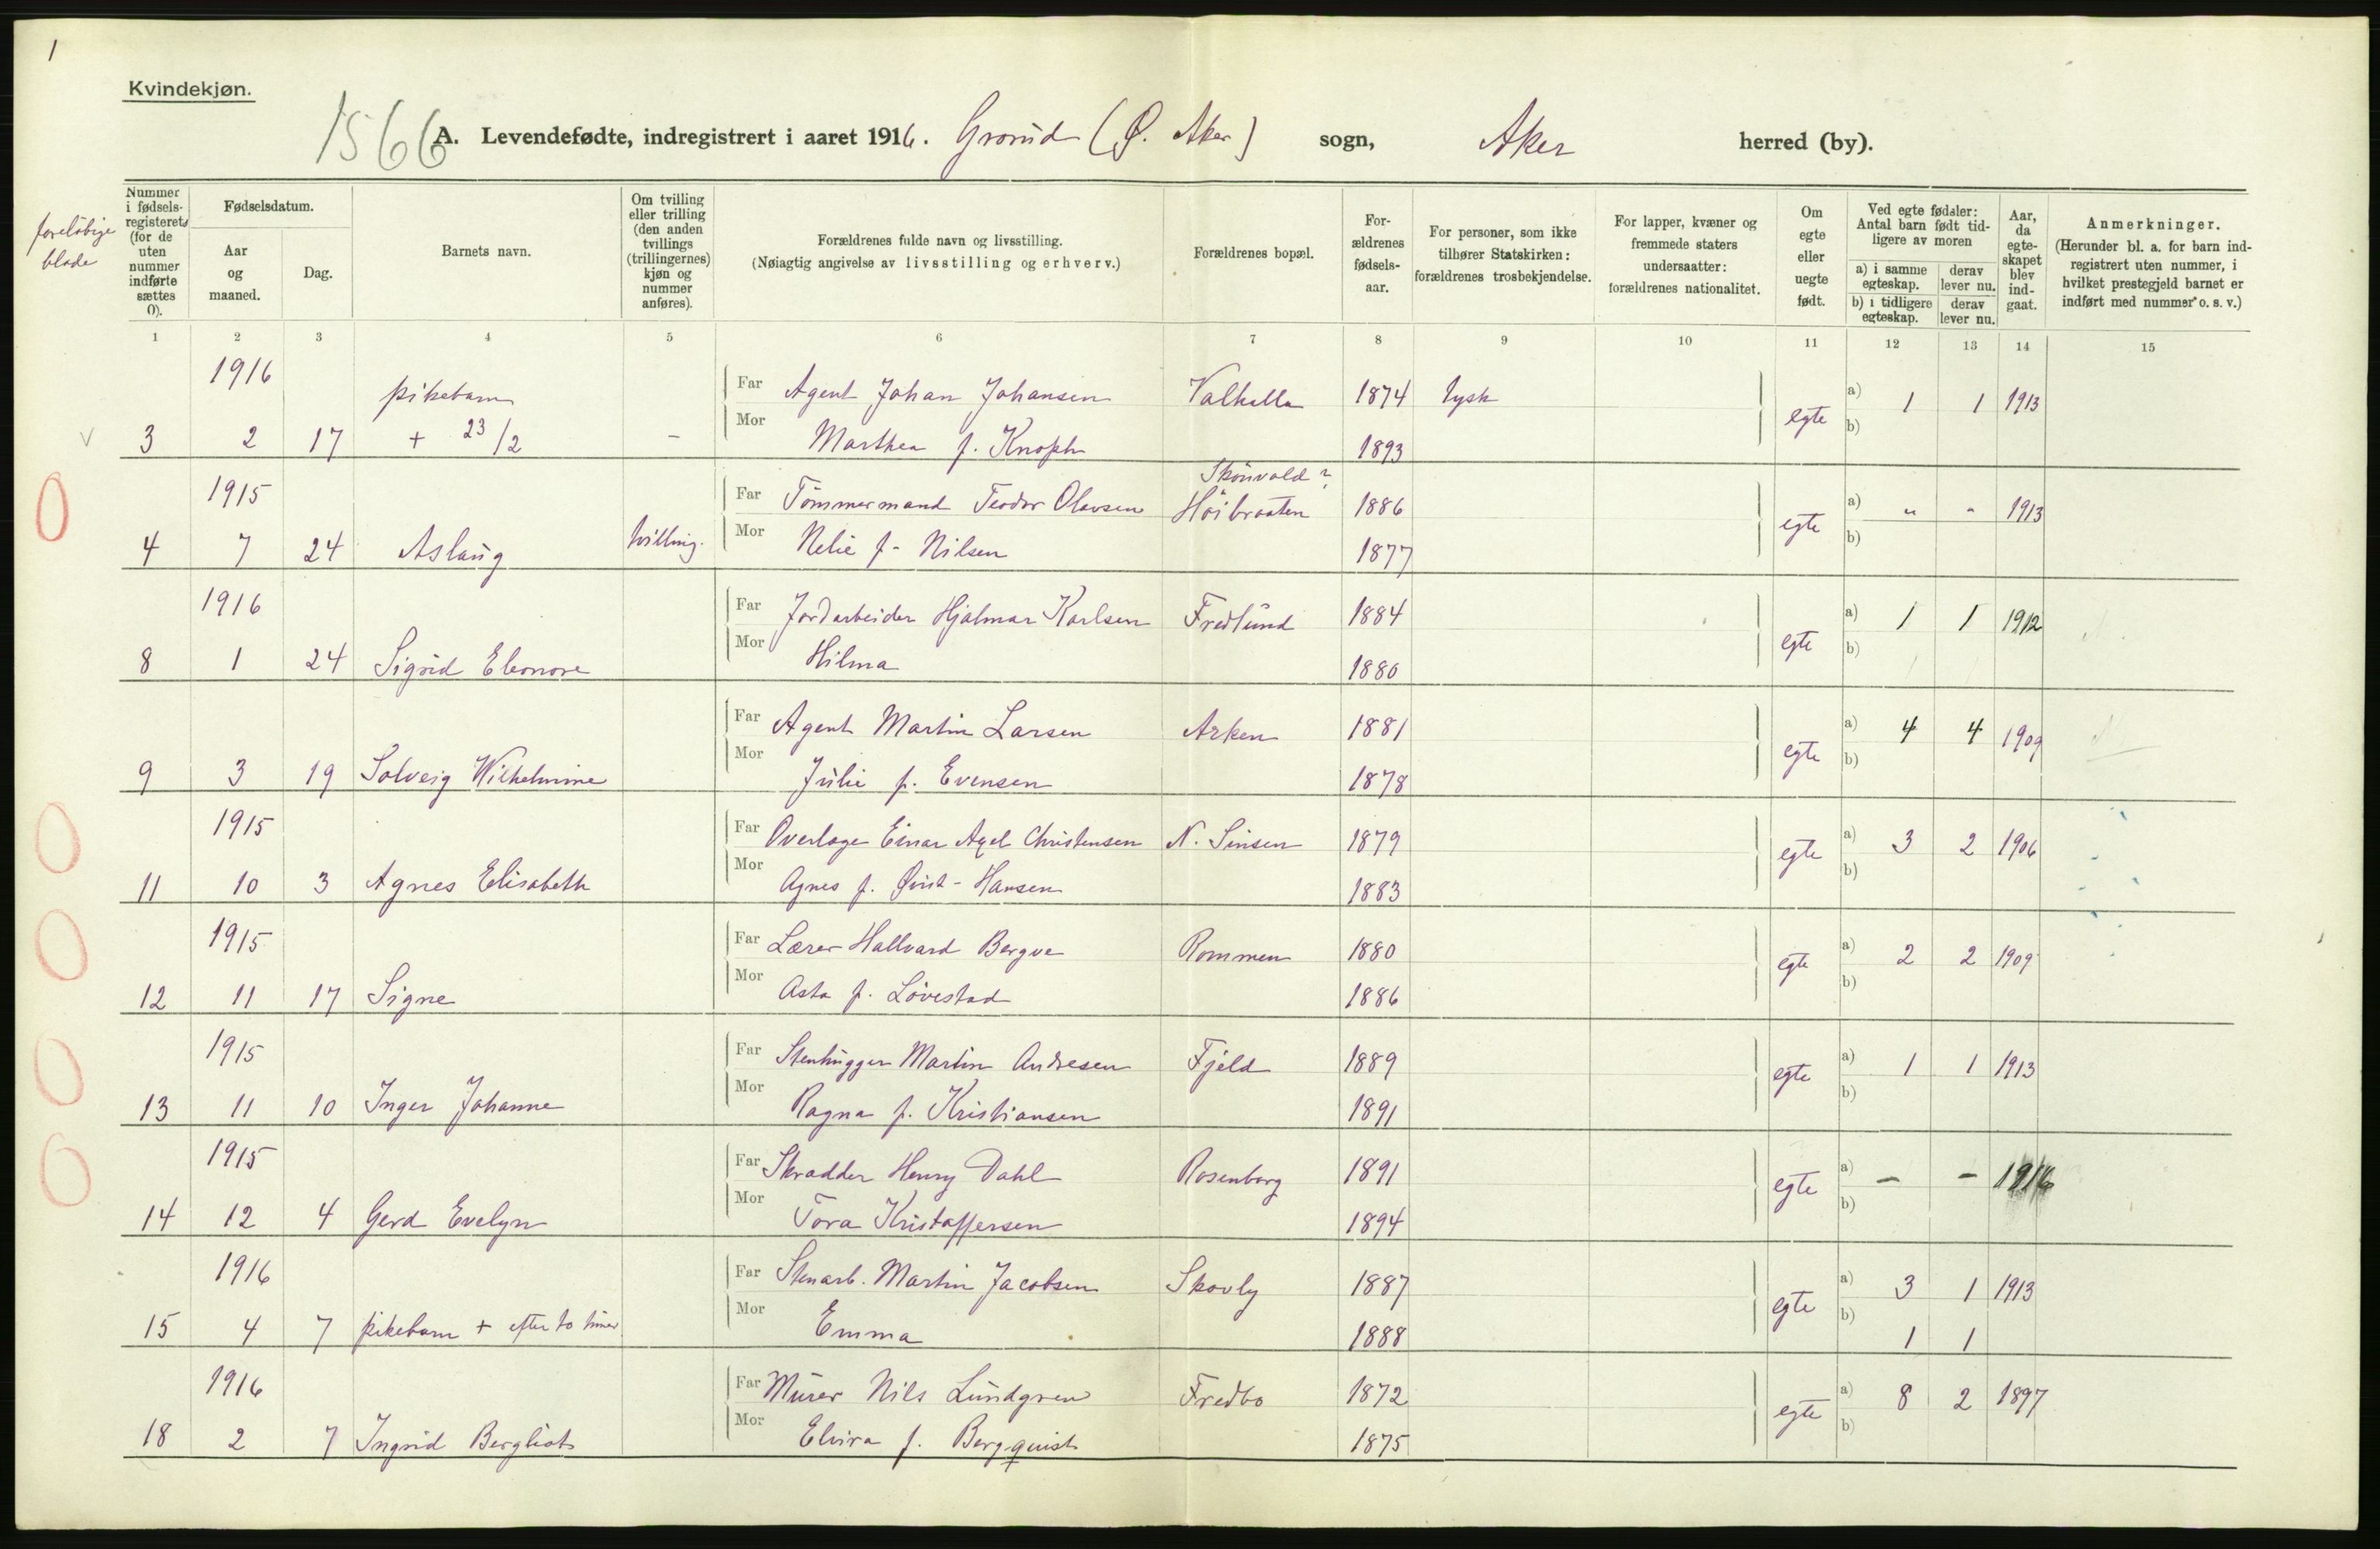 1
Kvindekjøn.
1566
A. Levendefødte, indregistrert i aaret 1916. Grorud (Ø. Aker) sogn, Aker herred (by).
foreløbige
blade
Nummer i fødselsregisteret (for de uten nummer indførte sættes 0).
Fødselsdatum.
Aar og maaned.
Dag.
Barnets navn.
Om tvilling eller trilling (den anden tvillings (trillingernes) kjøn og nummer anføres).
Forældrenes fulde navn og livsstilling.
(Nøiagtig angivelse av livsstilling og erhverv.)
Forældrenes bopæl.
Forældrenes fødselsaar.
For personer, som ikke tilhører Statskirken: forældrenes trosbekjendelse.
For lapper, kvæner og fremmede staters undersaatter: forældrenes nationalitet.
Om egte eller uegte født.
Ved egte fødsler: Antal barn født tidligere av moren
a) i samme egteskap. derav lever nu.
b) i tidligere egteskap. derav lever nu.
Aar, da egteskapet blev indgaat.
Anmerkninger.
(Herunder bl. a. for barn indregistrert uten nummer, i hvilket prestegjeld barnet er indført med nummer o. s. v.)
1 2 3 4 5 6 7 8 9 10 11 12 13 14 15
1916 pikebarn Far Agent Johan Johansen Valhalla 1874 tysk egte a) 1 1 1913
3 2 17 + 23/2 - Mor Marthea f. Knoph 1893 b)
Skönvold?
1915 Far Tömmermand Teodor Olavsen Höibraaten 1886 egte a) " " 1913
4 7 24 Aslaug tvilling. Mor Nelie f. Nilsen 1877 b)
1916 Far Jordarbeider Hjalmar Karlsen Fredlund 1884 egte a) 1 1 1912
8 1 24 Sigrid Eleonore Mor Hilma 1880 b)
Far Agent Martin Larsen Arken 1881 egte a) 4 4 1909
9 3 19 Solveig Wilhelmine Mor Julie f. Evensen 1878 b)
1915 Far Overlæge Einar Axel Christensen N. Sinsen 1879 egte a) 3 2 1906
11 10 3 Agnes Elisabeth Mor Agnes f. Qvist-Hansen 1883 b)
1915 Far Lærer Hallvard Bergve Rommen 1880 egte a) 2 2 1909
12 11 17 Signe Mor Asta f. Lövestad 1886 b)
1915 Far Stenhugger Martin Andresen Fjeld 1889 egte a) 1 1 1913
13 11 10 Inger Johanne Mor Ragna f. Kristiansen 1891 b)
1915 Far Skradder Henry Dahl Rosenborg 1891 egte a) - - 1916
14 12 4 Gerd Evelyn Mor Tora Kristoffersen 1894 b)
1916 Far Stenarb. Martin Jacobsen Skovly 1887 egte a) 3 1 1913
15 4 7 pikebarn + efter to timer Mor Emma 1888 b) 1 1
1916 Far Murer Nils Lundgren Fredbo 1872 egte a) 8 2 1897
18 2 7 Ingrid Bergliot Mor Elvira f. Bergquist 1875 b)